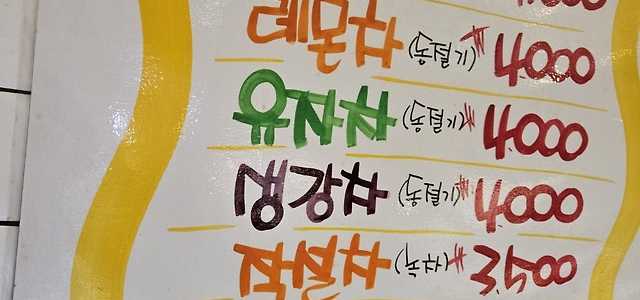 레몬차 (동절기) ₩4000
유자차 (동절기) ₩4000
생강차 (동절기) ₩4000
작설차 (녹차) ₩3500